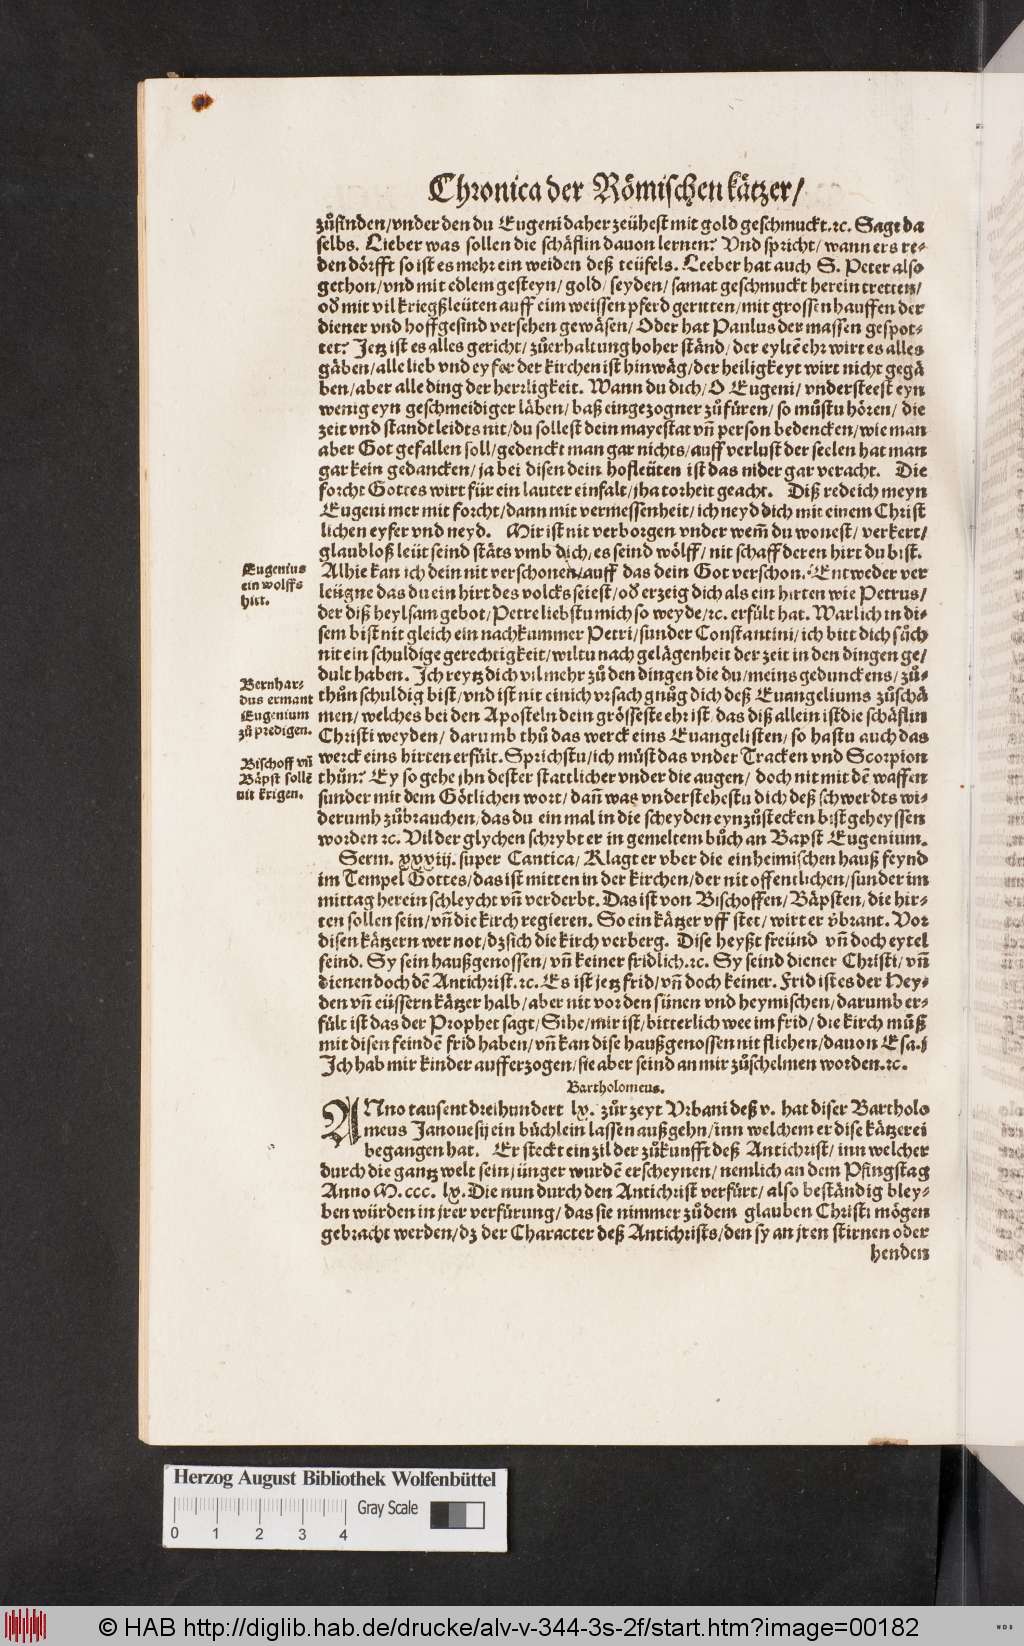 Chronica der Römischen kätzer/
zůfinden/vnder den du Eugeni daher zeühest mit gold geschmuckt.ꝛc. Sagt da
selbs. Lieber was sollen die schäflin dauon lernen? Vnd spricht/wann ers re⸗
den dörfft so ist es mehr ein weiden deß teüfels. Leeber hat auch S. Peter also
gethon/vnd mit edlem gesteyn/gold/seyden/samat geschmuckt herein tretten/
od̕ mit vil kriegßleüten auff eim weissen pferd geritten/mit grossen hauffen der
diener vnd hoffgesind versehen gewäsen/Oder hat Paulus der massen gespot⸗
tet? Jetz ist es alles gericht/zůerhaltung hoher ständ/der eyltē ehr wirt es alles
gäben/alle lieb vnd eyfer der kirchen ist hinwäg/der heiligkeyt wirt nicht gegä
ben/aber alle ding der herrligkeit. Wann du dich/O Eugeni/vndersteest eyn
wenig eyn geschmeidiger läben/baß eingezogner zůfüren/so můstu hören/die
zeit vnd standt leidts nit/du sollest dein mayestat vn̄ person bedencken/wie man
aber Got gefallen soll/gedenckt man gar nichts/auff verlust der seelen hat man
gar kein gedancken/ja bei disen dein hofleüten ist das nider gar veracht. Die
forcht Gottes wirt für ein lauter einfalt/jha torheit geacht. Diß rede ich meyn
Eugeni mer mit forcht/dann mit vermessenheit/ich neyd dich mit einem Christ
lichen eyfer vnd neyd. Mir ist nit verborgen vnder wem̄ du wonest/verkert/
glaubloß leüt seind stäts vmb dich/es seind wölff/nit schaff deren hirt du bist.
Alhie kan ich dein nit verschonen/auff das dein Got verschon. Entweder ver
leügne das du ein hirt des volcks seiest/od̕ erzeig dich als ein hirten wie Petrus/
der diß heylsam gebot/Petre liebstu mich so weyde/ꝛc. erfült hat. Warlich in di⸗
sem bist nit gleich ein nachkummer Petri/sunder Constantini/ich bitt dich sůch
nit ein schuldige gerechtigkeit/wiltu nach gelägenheit der zeit in den dingen ge/
dult haben. Ich reytz dich vil mehr zů den dingen die du/meins gedunckens/zů⸗
thůn schuldig bist/vnd ist nit einich vrsach gnůg dich deß Euangeliums zůschä
men/welches bei den Aposteln dein grösseste ehr ist/das diß allein ist die schäflin
Christi weyden/darumb thů das werck eins Euangelisten/so hastu auch das
werck eins hirten erfült. Sprichstu/ich můst das vnder Tracken vnd Scorpion
thůn? Ey so gehe jhn dester stattlicher vnder die augen/doch nit mit dē waffen
sunder mit dem Götlichen wort/dan̄ was vnderstehestu dich deß schwerdts wi⸗
derumb zůbrauchen/das du ein mal in die scheyden eynzůstecken bist geheyssen
worden ꝛc. Vil der glychen schrybt er in gemeltem bůch an Bapst Eugenium.
Serm. xxxiij. super Cantica/Klagt er vber die einheimischen hauß feynd
im Tempel Gottes/das ist mitten in der kirchen/der nit offentlichen/sunder im
mittag herein schleycht vn̄ verderbt. Das ist von Bischoffen/Bäpsten/die hir⸗
ten sollen sein/vn̄ die kirch regieren. So ein kätzer vff stet/wirt er v̈brant. Vor
disen kätzern wer not/dz sich die kirch verberg. Dise heyßt freünd vn̄ doch eytel
feind. Sy sein haußgenossen/vn̄ keiner fridlich.ꝛc. Sy seind diener Christi/vn̄
dienen doch dē Antichrist.ꝛc. Es ist jetz frid/vn̄ doch keiner. Frid ist es der Hey⸗
den vn̄ eüssern kätzer halb/aber nit vor den sünen vnd heymischen/darumb er⸗
fült ist das der Prophet sagt/Sihe/mir ist/bitterlich wee im frid/die kirch můß
mit disen feindē frid haben/vn̄ kan dise haußgenossen nit fliehen/dauon Esa.j
Ich hab mir kinder aufferzogen/sie aber seind an mir zůschelmen worden.ꝛc.
Bartholomeus.
ANno tausent dreihundert lx. zůr zeyt Vrbani deß v. hat diser Bartholo
meus Janouesij ein bůchlein lassen außgehn/inn welchem er dise kätzerei
begangen hat. Er steckt ein zil der zůkunfft deß Antichrist/inn welcher
durch die gantz welt sein jünger wurdē erscheynen/nemlich an dem Pfingstag
Anno M. ccc. lx. Die nun durch den Antichrist verfürt/also beständig bley⸗
ben würden in jrer verfürung/das sie nimmer zů dem glauben Christi mögen
gebracht werden/dz der Character deß Antichrists/den sy an jren stirnen oder
henden
Eugenius
ein wolffs
hirt.
Bernhar⸗
dus ermant
Eugenium
zů predigen.
Bischoff vn̄
Bäpst sollē
nit krigen.
Herzog August Bibliothek Wolfenbüttel
Gray Scale
0 1 2 3 4
© HAB http://diglib.hab.de/drucke/alv-v-344-3s-2f/start.htm?image=00182